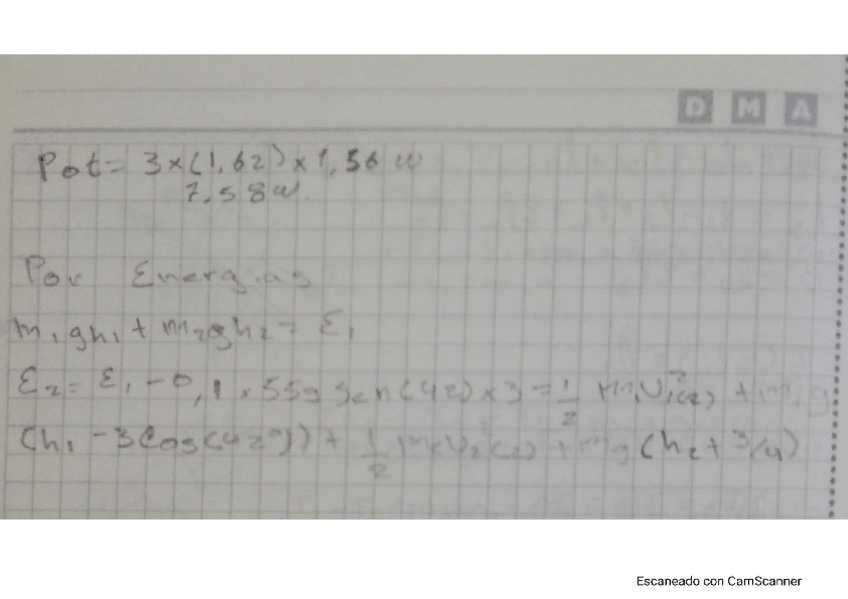 D M A
Pot = 3 × (1,62) × 1,56 w
7,58 w.
Por Energias
m₁gh₁ + m₂gh₂ = E₁
E₂ = E₁ - 0,1 × 55g Sen(42) × 3 = 1/2 m₁V₁²(2) + m₁g
(h₁ - 3Cos(42°)) + 1/2 m₂V₂²(2) + mg (h₂ + 3/4)
Escaneado con CamScanner